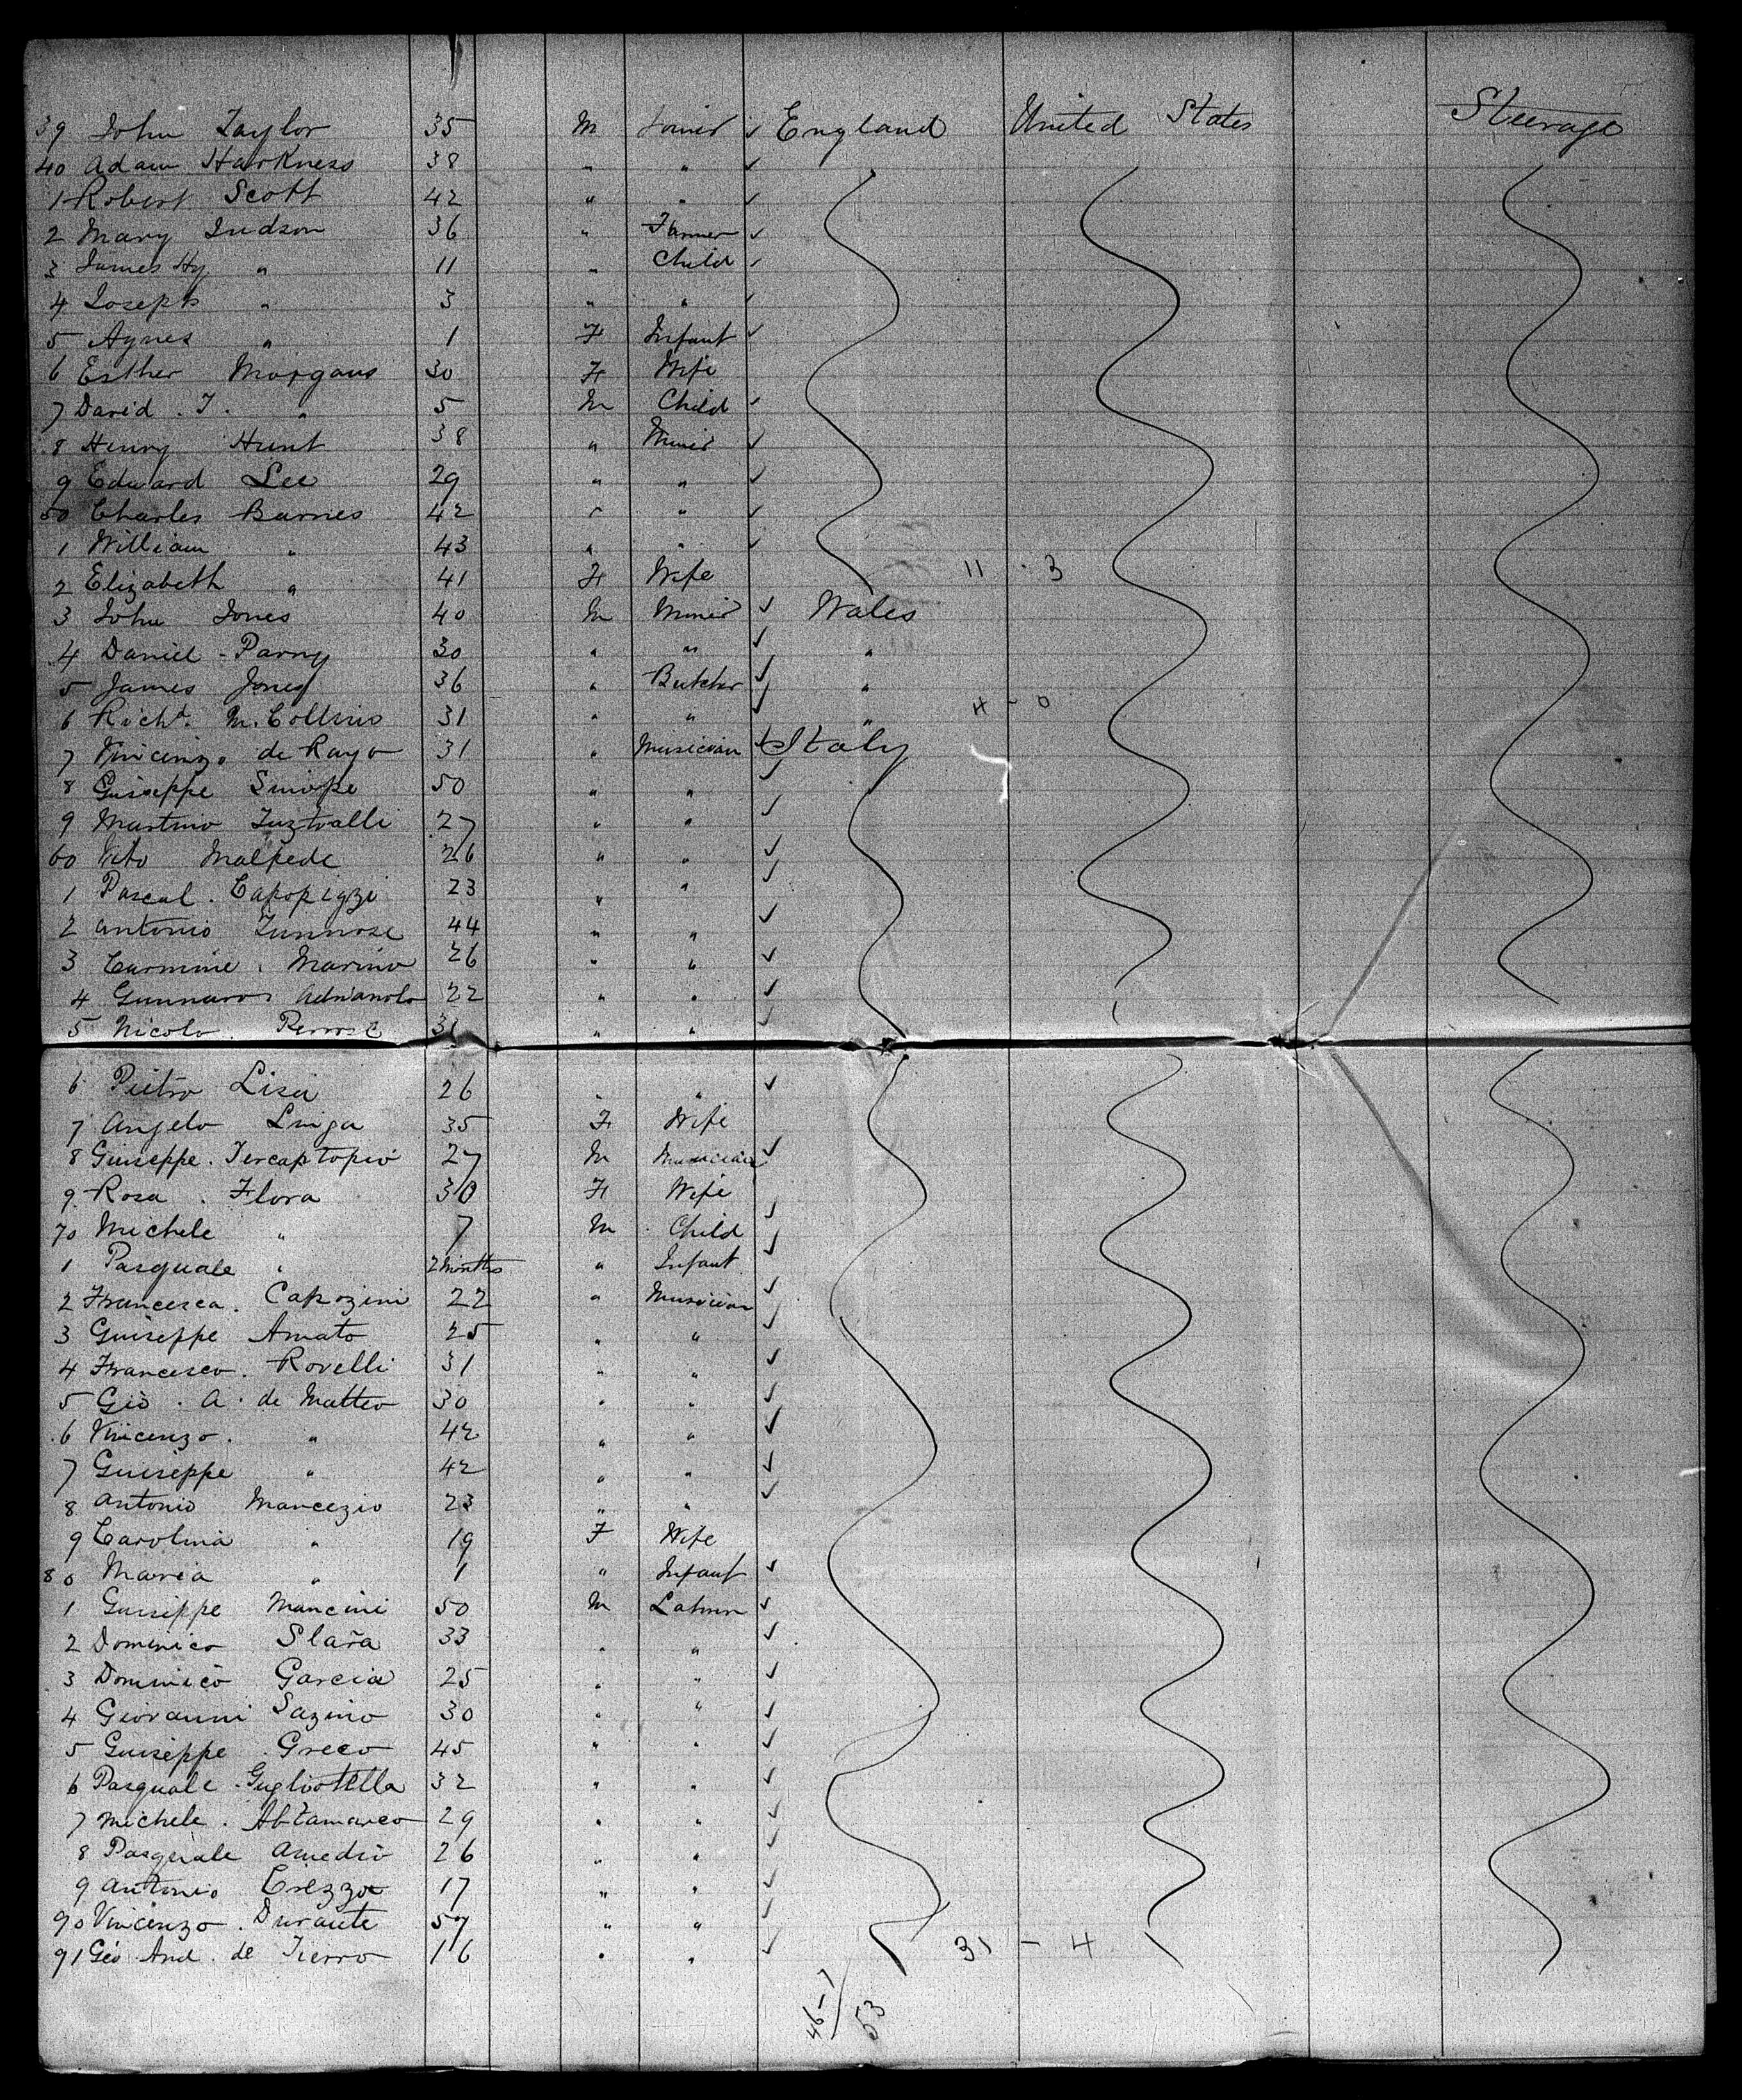 39 John Taylor 35 M Joiner ✓ England United States Steerage
40 Adam Harkness 38 " " ✓
1 Robert Scott 42 " " ✓
2 Mary Judson 36 " Farmer ✓
3 James Hy " 11 " Child ✓
4 Joseph " 3 " " ✓
5 Agnes " 1 F Infant ✓
6 Esther Morgans 30 F Wife
7 David . J. " 5 M Child ✓
8 Henry Hunt 38 " Miner ✓
9 Edward Lee 29 " " ✓
50 Charles Barnes 42 " " ✓
1 William " 43 " " ✓
2 Elizabeth " 41 F Wife 11 - 3
3 John Jones 40 M Miner ✓ Wales
4 Daniel - Parry 30 " " ✓ "
5 James Jones 36 " Butcher ✓ "
6 Richd. M. Collins 31 " " ✓ " 4 - 0
7 Vincenzo de Rayo 31 " Musician ✓ Italy
8 Guiseppe Sinope 50 " " ✓
9 Martino 27 " " ✓
60 Vito Malpede 26 " " ✓
1 Pascal . Capopizzi 23 " " ✓
2 Antonio 44 " " ✓
3 Carmine . Marino 26 " " ✓
4 Gunnaro Adrianolo 22 " " ✓
5 Nicolo . 31 " " ✓
6 Pietro Lisa 26 " " ✓
7 Angelo Linga 35 F Wife
8 Giuseppe . 27 M Musician ✓
9 Rosa . Flora 30 F Wife
70 Michele " 7 M Child ✓
1 Pasquale " 2 months " Infant ✓
2 Francesca . Capozini 22 " Musician ✓
3 Guiseppe Amato 25 " " ✓
4 Francesco . Rovelli 31 " " ✓
5 Gio . A . de Matteo 30 " " ✓
6 Vincenzo . " 42 " " ✓
7 Guiseppe " 42 " " ✓
8 Antonio Mancezio 23 " " ✓
9 Carolina " 19 F Wife
80 Maria " 1 " Infant ✓
1 Guiseppe Mancini 50 M ✓
2 Dominico 33 " " ✓
3 Dominico Garcia 25 " " ✓
4 Giovanni Sazino 30 " " ✓
5 Guiseppe . Greco 45 " " ✓
6 Pasquale . Gugliotella 32 " " ✓
7 Michele . Abtamarco 29 " " ✓
8 Pasquale Amedio 26 " " ✓
9 Antonio 17 " " ✓
90 Vincenzo . Durante " " ✓
91 Gio And . de Tierro 16 " " ✓ 31 - 4
46-7/53